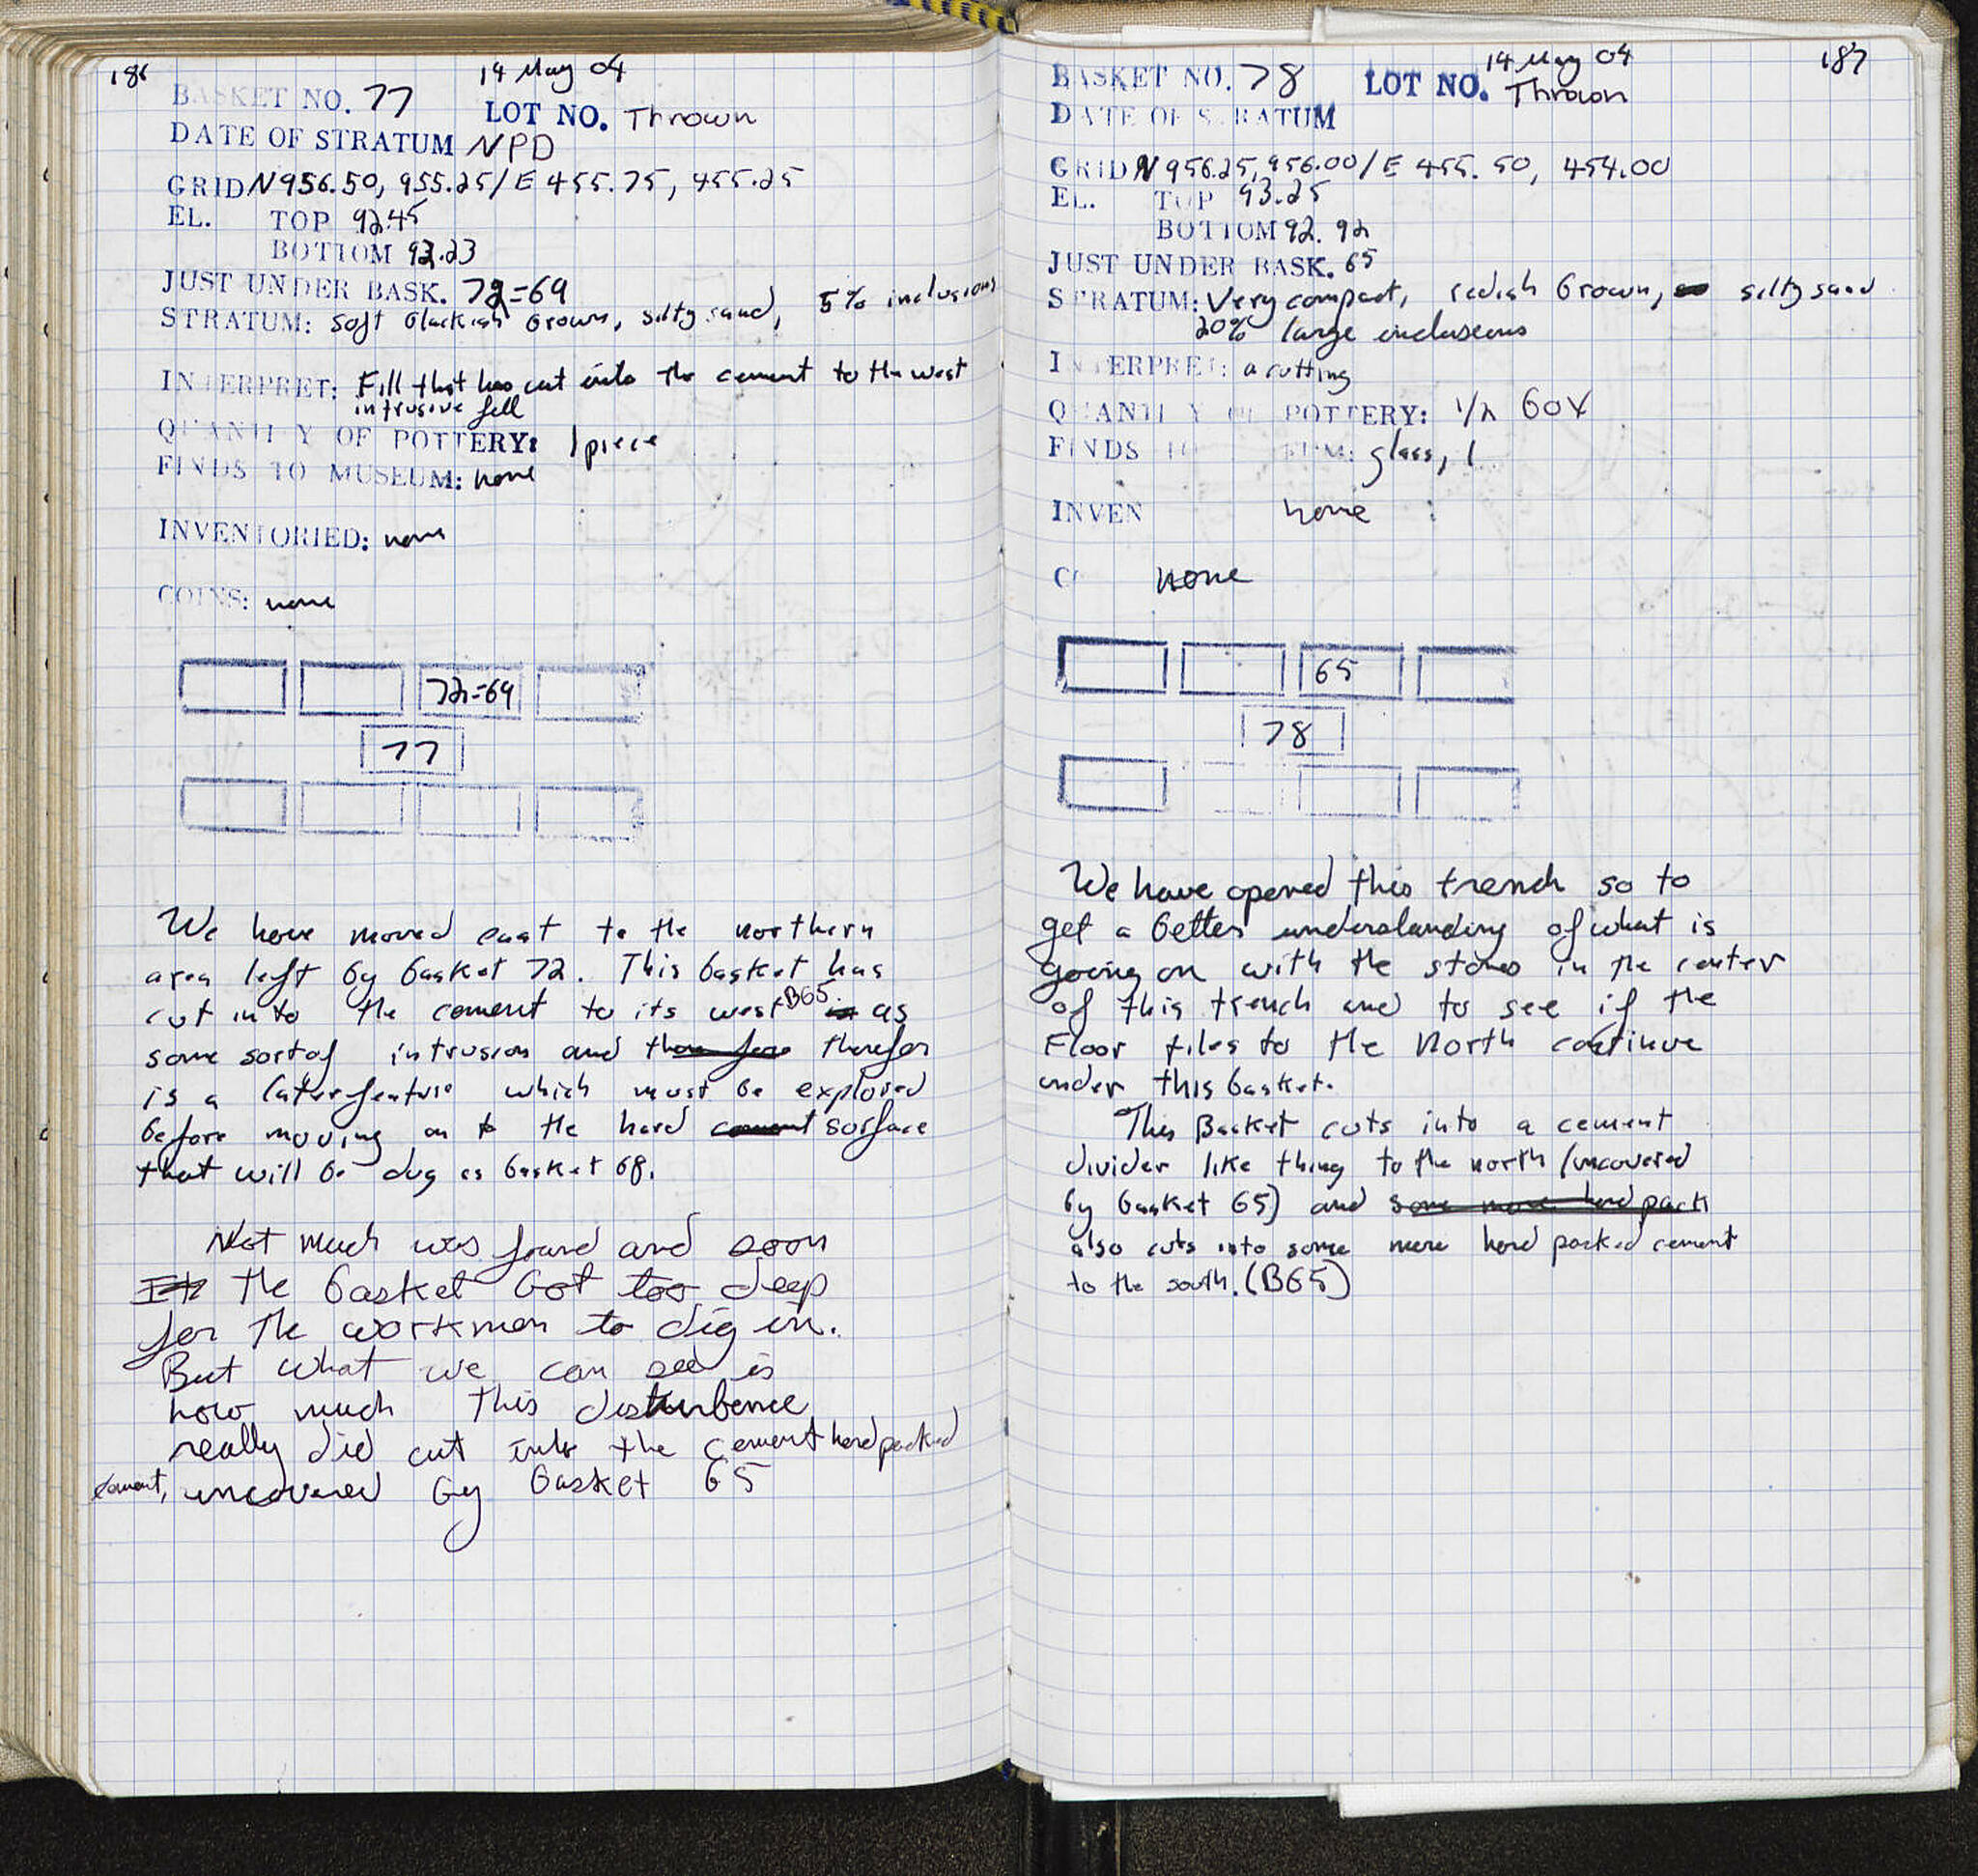 186
14 May 04
BASKET NO. 77
LOT NO. Thrown
DATE OF STRATUM NPD
GRID N956.50, 955.25/E 455.75, 455.25
EL. TOP 92.45
BOTTOM 92.23
JUST UNDER BASK. 72=69
STRATUM: Soft blackish brown, silty sand, 5% inclusions
INTERPRET: Fill that has cut into the cement to the west
intrusive fill
QUANTITY OF POTTERY: 1 piece
FINDS TO MUSEUM: none
INVENTORIED: none
COINS: none
72=69
77
We have moved east to the northern
area left by basket 72. This basket has
cut into the cement to its west B65 as
some sort of intrusion and therefor
is a later feature which must be explored
before moving on to the hard cement surface
that will be dug as basket 68.
Not much was found and soon
the basket got too deep
for the workmen to dig in.
But what we can see is
how much this disturbence
really did cut into the cement hard packed
cement, uncovered by basket 65
187
14 May 04
BASKET NO. 78 LOT NO. Thrown
DATE OF STRATUM
GRID N 956.25, 956.00/E 455.50, 454.00
EL. TOP 93.25
BOTTOM 92.92
JUST UNDER BASK. 65
STRATUM: Very compact, redish brown, silty sand
20% large incluseons
INTERPRET: a cutting
QUANTITY OF POTTERY: 1/2 box
FINDS TO EUM: glass, 1
INVEN none
C none
65
78
We have opened this trench so to
get a better understanding of what is
going on with the stones in the center
of this trench and to see if the
Floor tiles to the North continue
under this basket.
This Basket cuts into a cement
divider like thing to the north (uncovered
by basket 65) and some more hard pack
also cuts into some more hard packed cement
to the south. (B65)